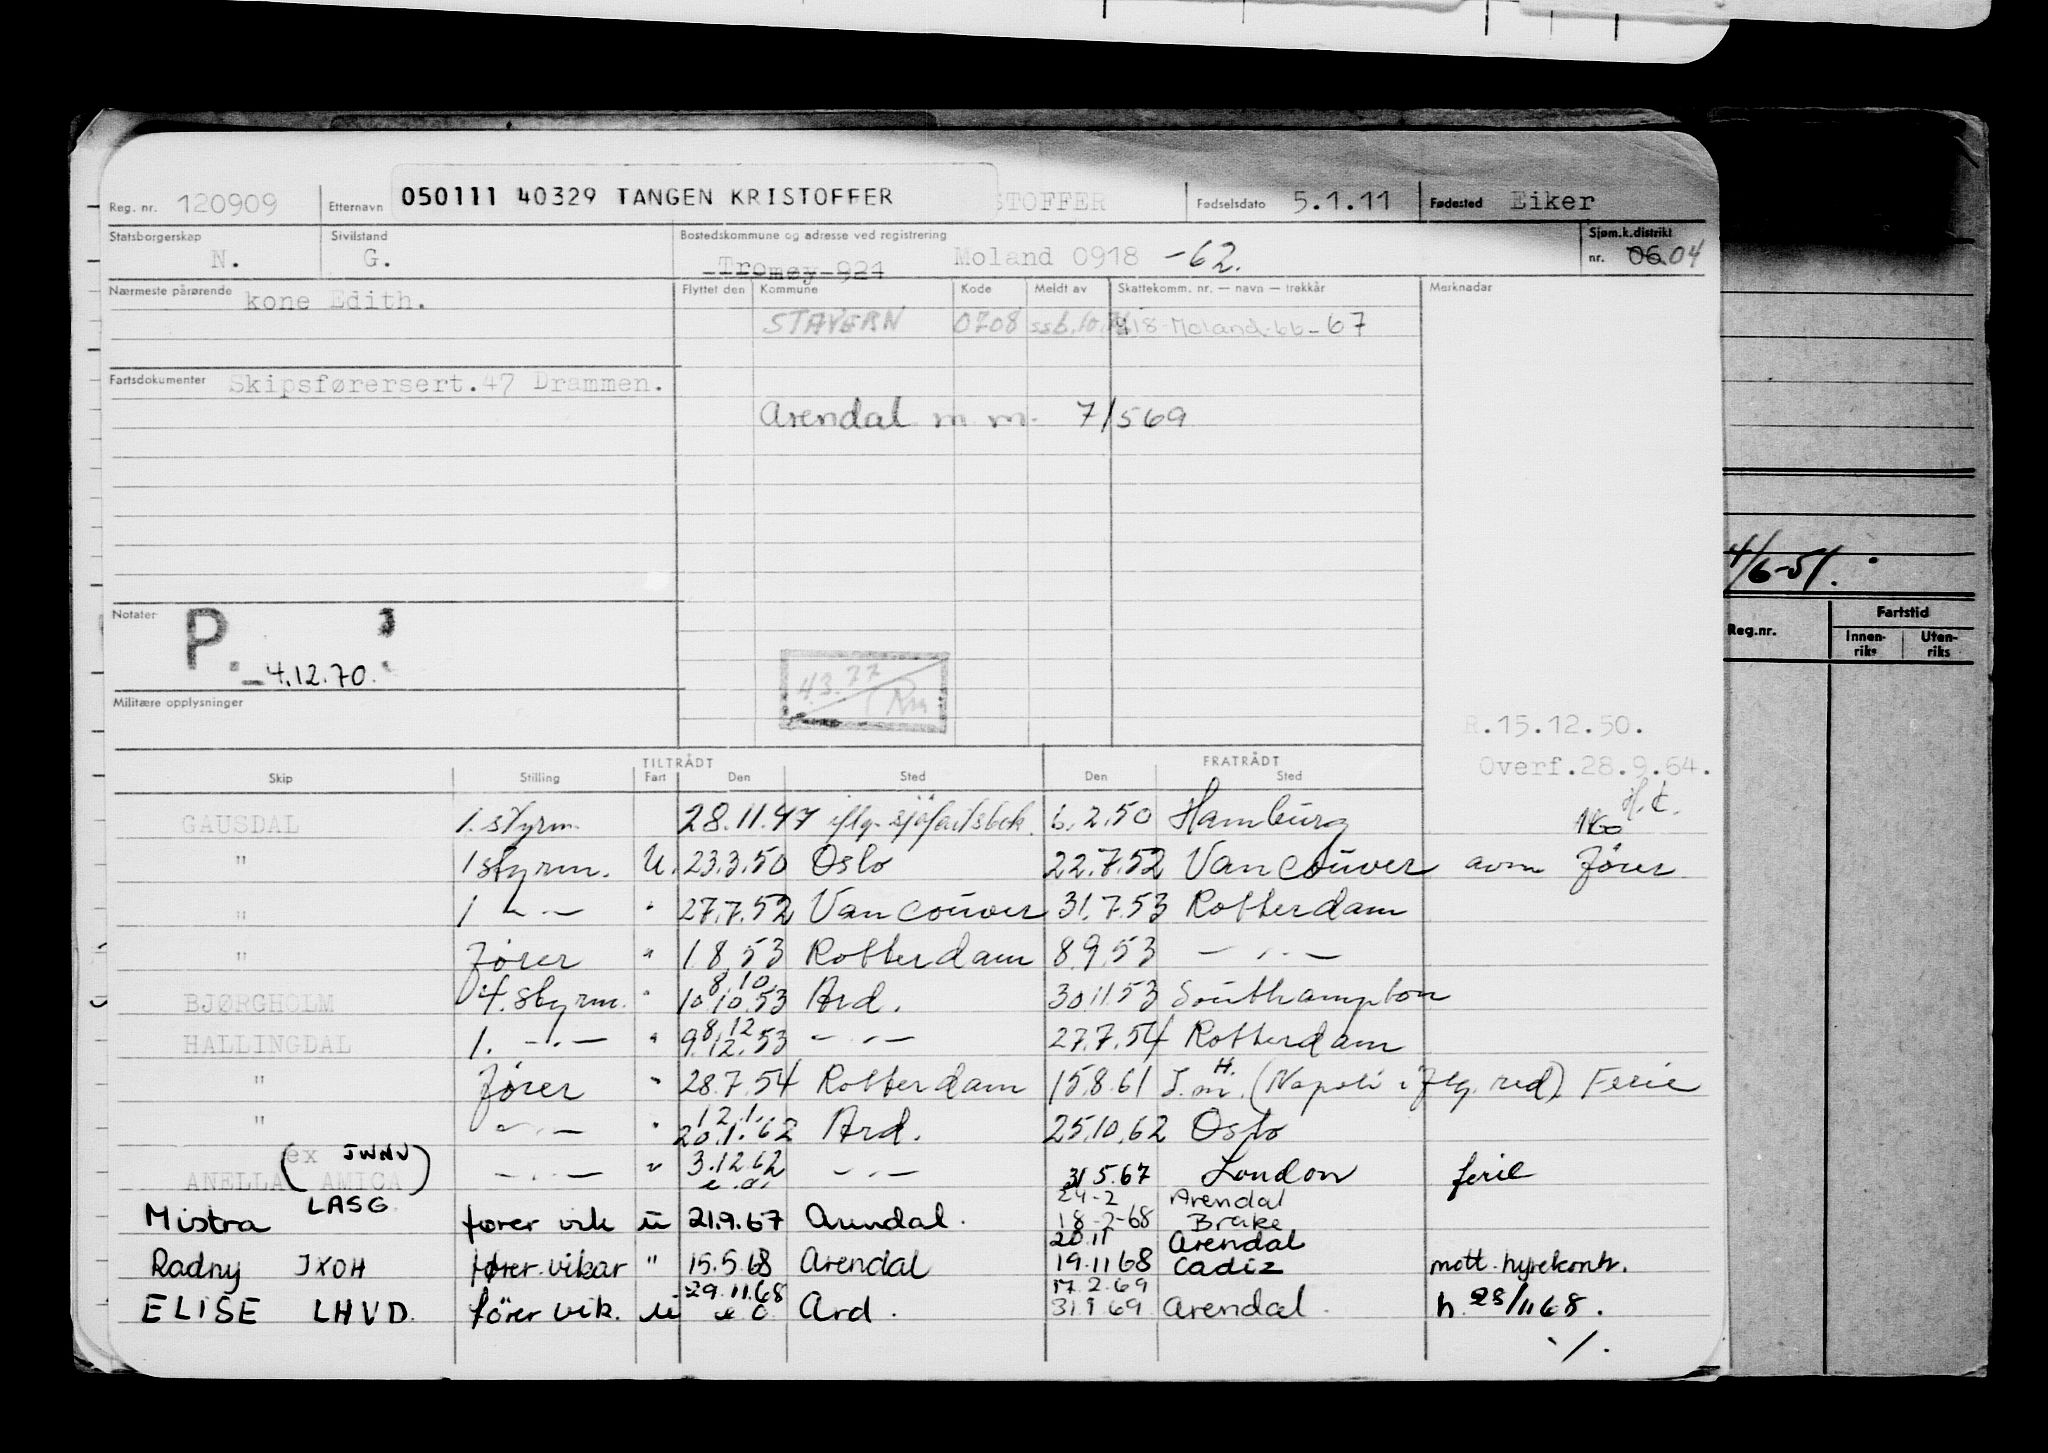 Reg. nr. 120909 Etternavn 050111 40329 TANGEN KRISTOFFER STOFFER Fødselsdato 5.1.11 Fødested Eiker
Statsborgerskap N. Sivilstand G. Bostedskommune og adresse ved registrering Tromøy 924 Moland 0918 -62. Sjøm.k.distrikt nr. 06 04
Nærmeste pårørende kone Edith. Flyttet den Kommune Kode Meldt av Skattekomm. nr. — navn — trekkår Merknader
STAVERN 0708 ssb. 918-Moland-66-67
Fartsdokumenter Skipsførersert.47 Drammen.
Arendal m m. 7/5 69
4/6-51.
Reg.nr. Fartstid
Innen-riks Uten-riks
Notater P. 4.12.70.
4.3.77
Militære opplysninger
R.15.12.50.
Overf.28.9.64.
TILTRÅDT FRATRÅDT
Skip Stilling Fart Den Sted Den Sted
H.t.
GAUSDAL 1. styrm. 28.11.47 iflg. sjøfartsbok. 6.2.50 Hamburg
" 1 styrm. U. 23.3.50 Oslo 22.7.52 Vancouver avm Fører
" 1 — " — " 27.7.52 Vancouver 31.7.53 Rotterdam
" Fører " 1.8.53 Rotterdam 8.9.53 — " —
8.10.
BJØRGHOLM 4. styrm. " 10.10.53 Ard. 30.11.53 Southampton
8.12
HALLINGDAL 1. — " — " 9.12.53 — " — 27.7.54 Rotterdam
" Fører " 28.7.54 Rotterdam 15.8.61 S.m.H. (Napoli iflg. red) Ferie
12.1.
" — " — " 20.1.62 Ard. 25.10.62 Oslo
ANELLA (ex AMICA JWNU) — " — " 3.12.62 — " — 31.5.67 London ferie
e.o.
24-2 Arendal
Mistra LASG fører vik u 21.9.67 Arendal. 18-2-68 Brake
20.11 Arendal
Radny JXOH fører.vikar " 15.5.68 Arendal 19.11 68 Cadiz mott. hyrekontr.
29.11.68 17.2.69
ELISE LHVD. fører vik. u e o Ard. 31.1 69 Arendal. h. 28/11 68.
./.